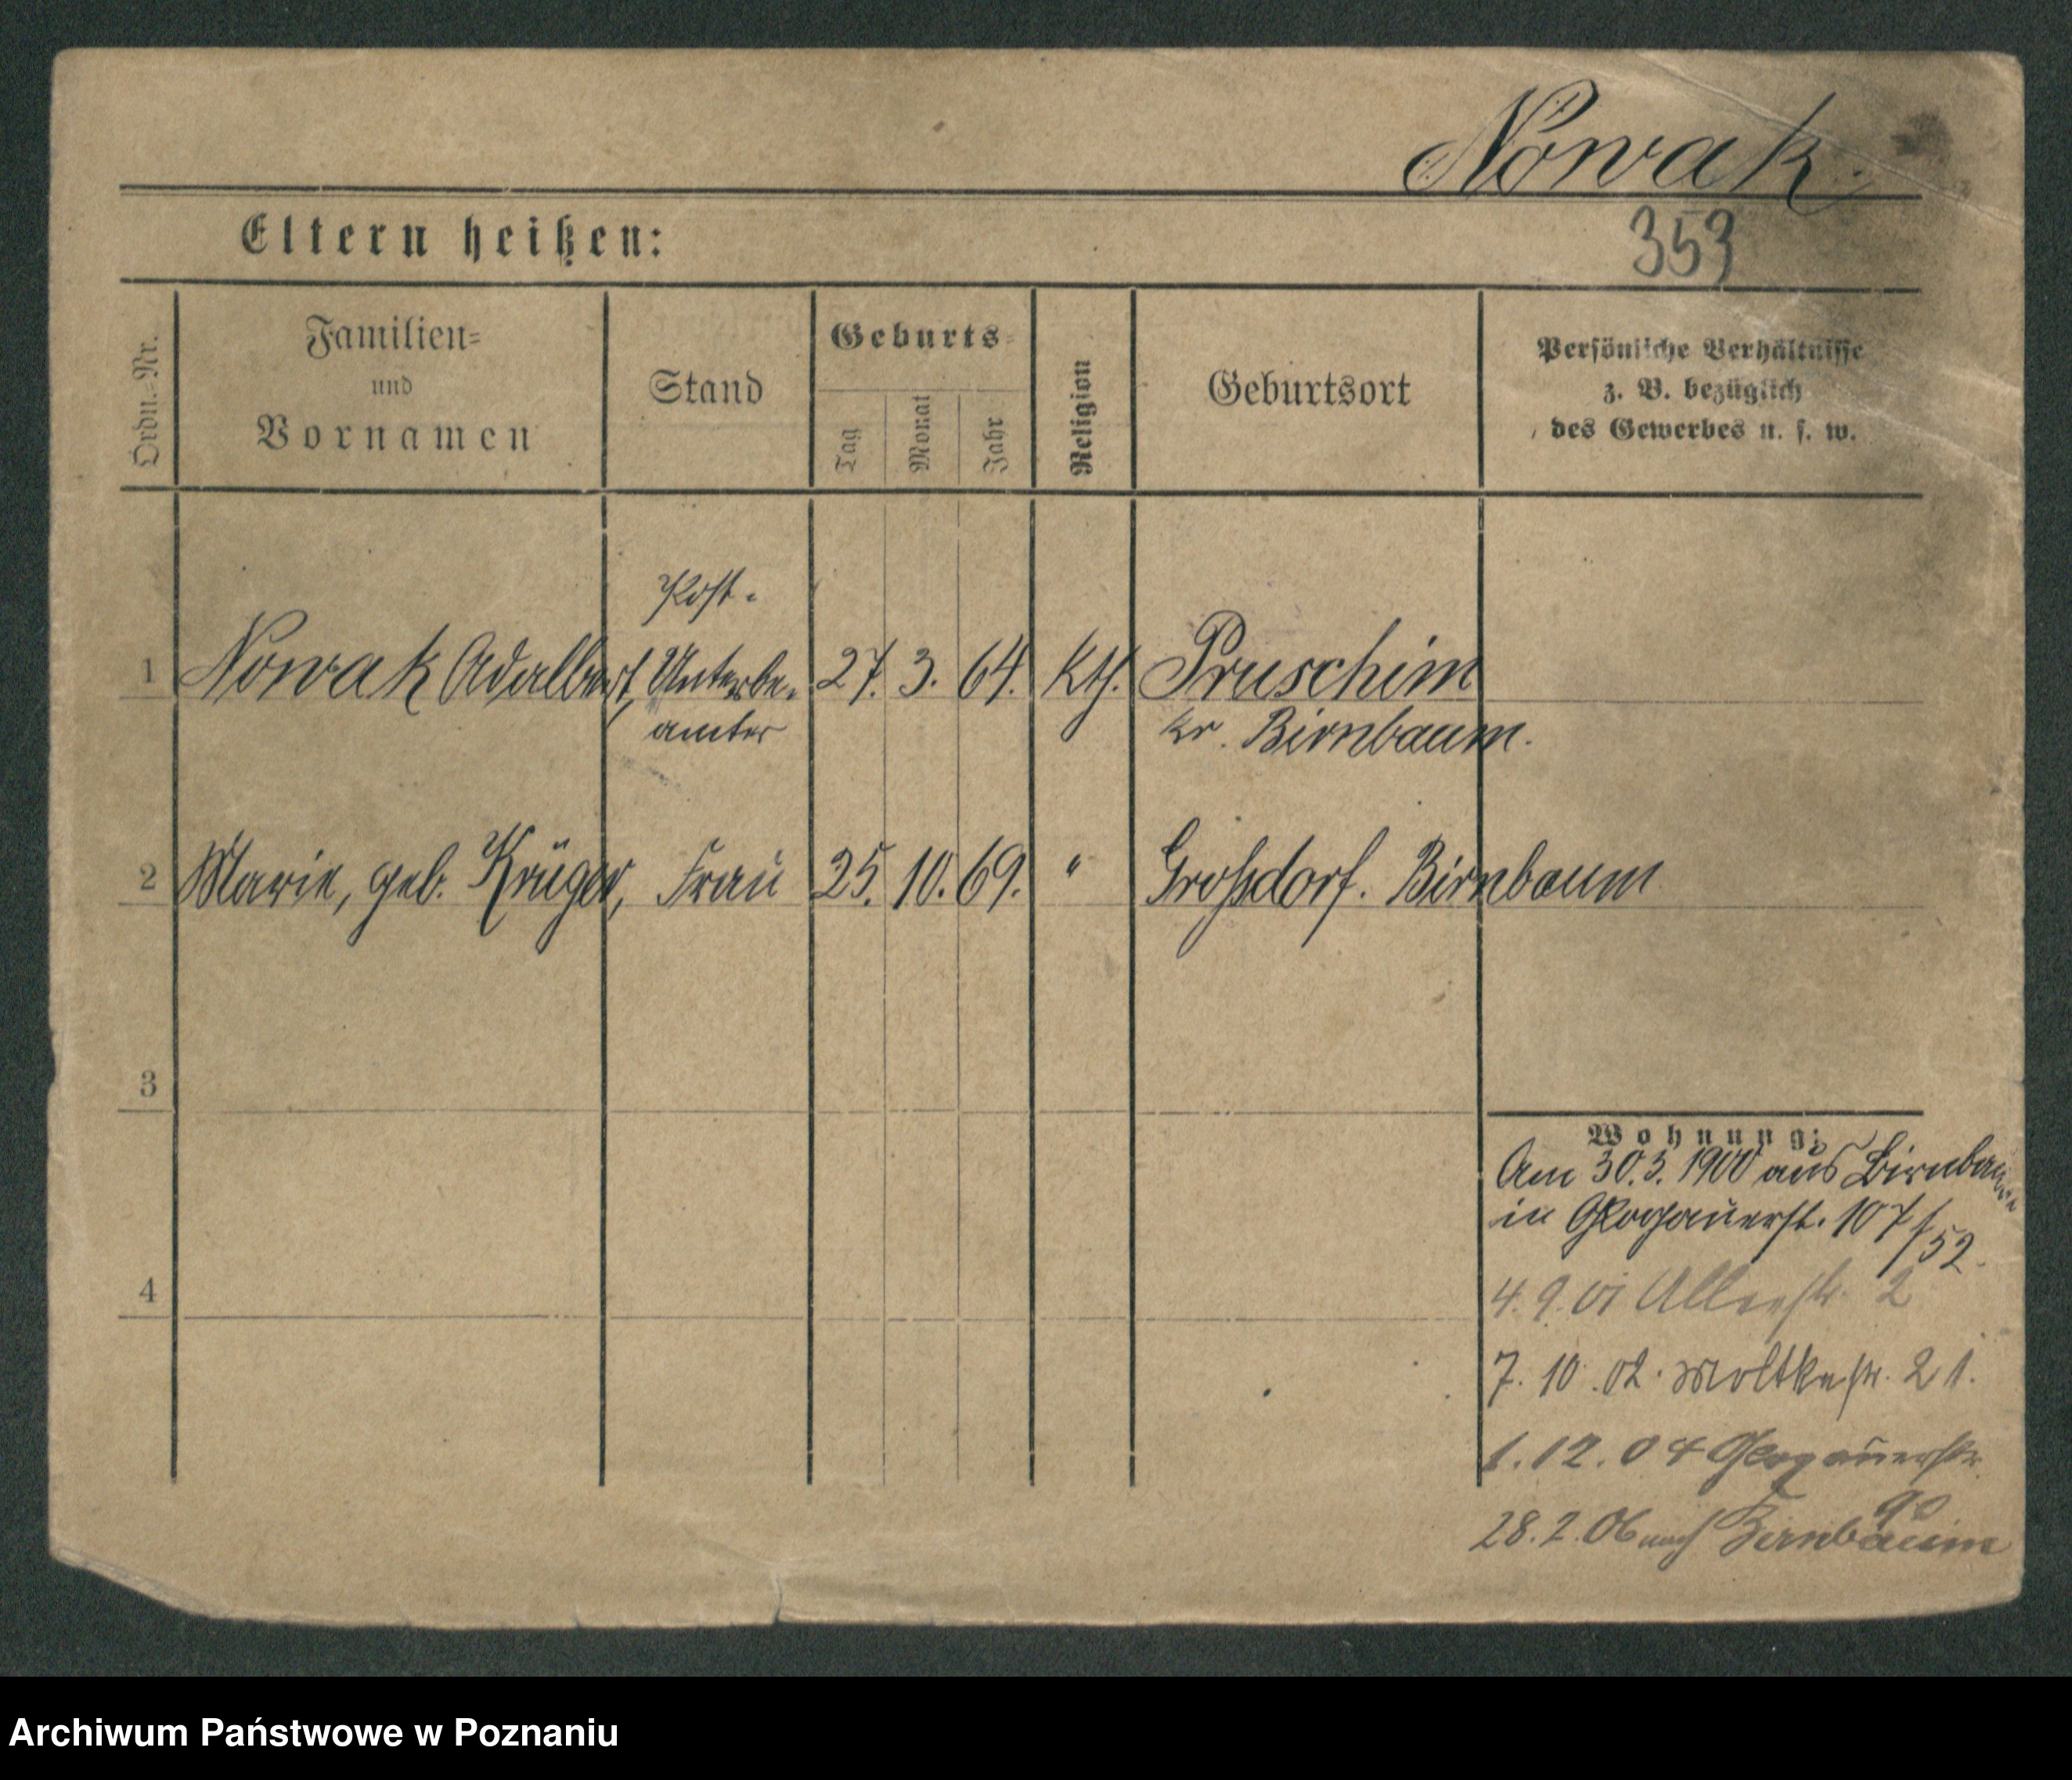 Nowak.
353
Eltern heißen:
Ordn.=Nr.
Familien=
und
Vornamen
Stand
Geburts=
Tag
Monat
Jahr
Religion
Geburtsort
Persönliche Verhältnisse
z. B. bezüglich
des Gewerbes u. s. w.
Post-
1 Nowak Adalbert, Unterbe- 27. 3. 64. Kth. Pruschim
amter Kr. Birnbaum.
2 Marie, geb. Krüger, Frau 25. 10. 69. " Großdorf. Birnbaum
3
Wohnung:
Am 30.3. 1900 aus Birnbaum
in Glogauerst. 107/52.
4
4. 9. 01 Alleestr. 2
7. 10. 02. Moltkestr. 21.
1. 12. 04 Glogauerstr.
90
28. 2. 06 nach Birnbaum
Archiwum Państwowe w Poznaniu